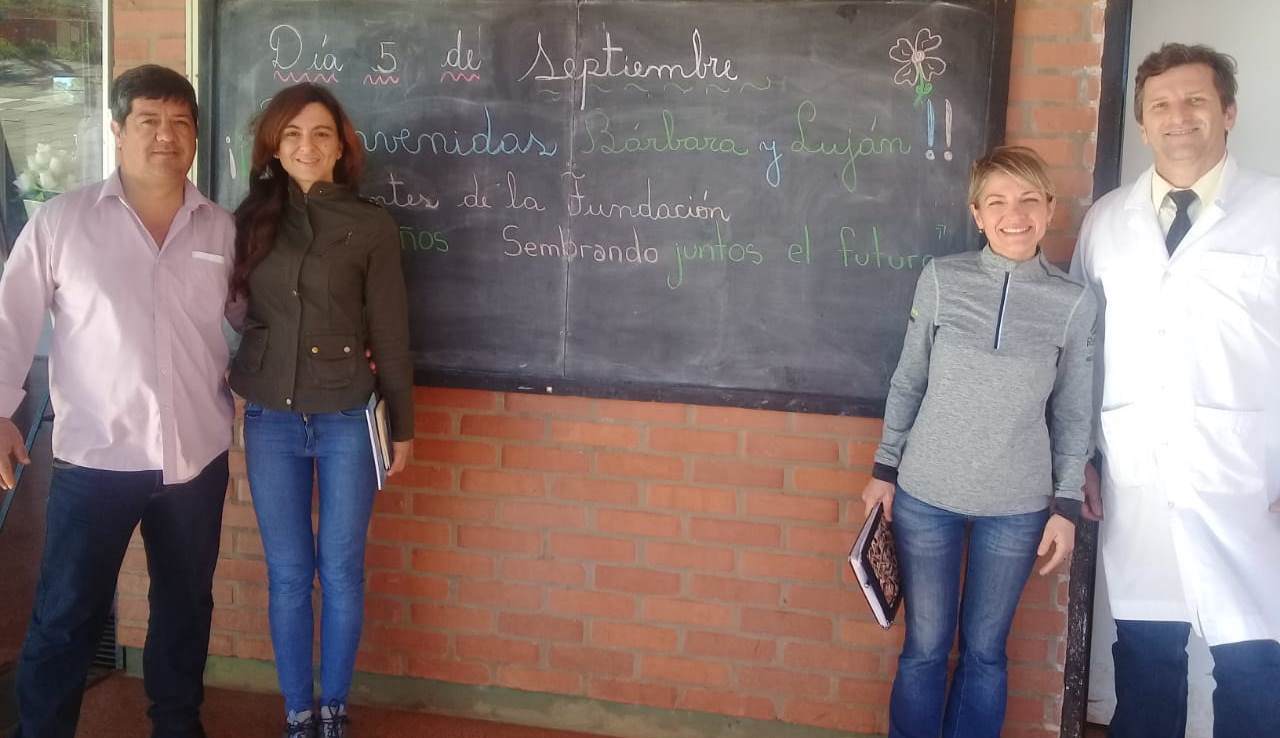 Día 5 de Septiembre
Bárbara y Luján !!
de la Fundación
Sembrando juntos el futuro"